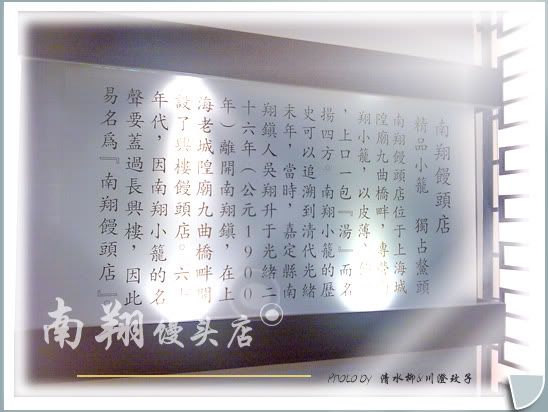 南翔饅頭店
精品小籠　獨占鰲頭
南翔饅頭店位于上海城
隍廟九曲橋畔，專營
翔小籠，以皮薄、
，上口一包『湯』而名
揚四方。南翔小籠的歷
史可以追溯到清代光緒
末年，當時，嘉定縣南
翔鎮人吳翔升于光緒二
十六年（公元1900
年）離開南翔鎮，在上
海老城隍廟九曲橋畔開
設了興樓饅頭店。六十
年代，因南翔小籠的名
聲要蓋過長興樓，因此
易名爲『南翔饅頭店』
南翔馒头店
PHOTO BY 清水柳&川澄玟子